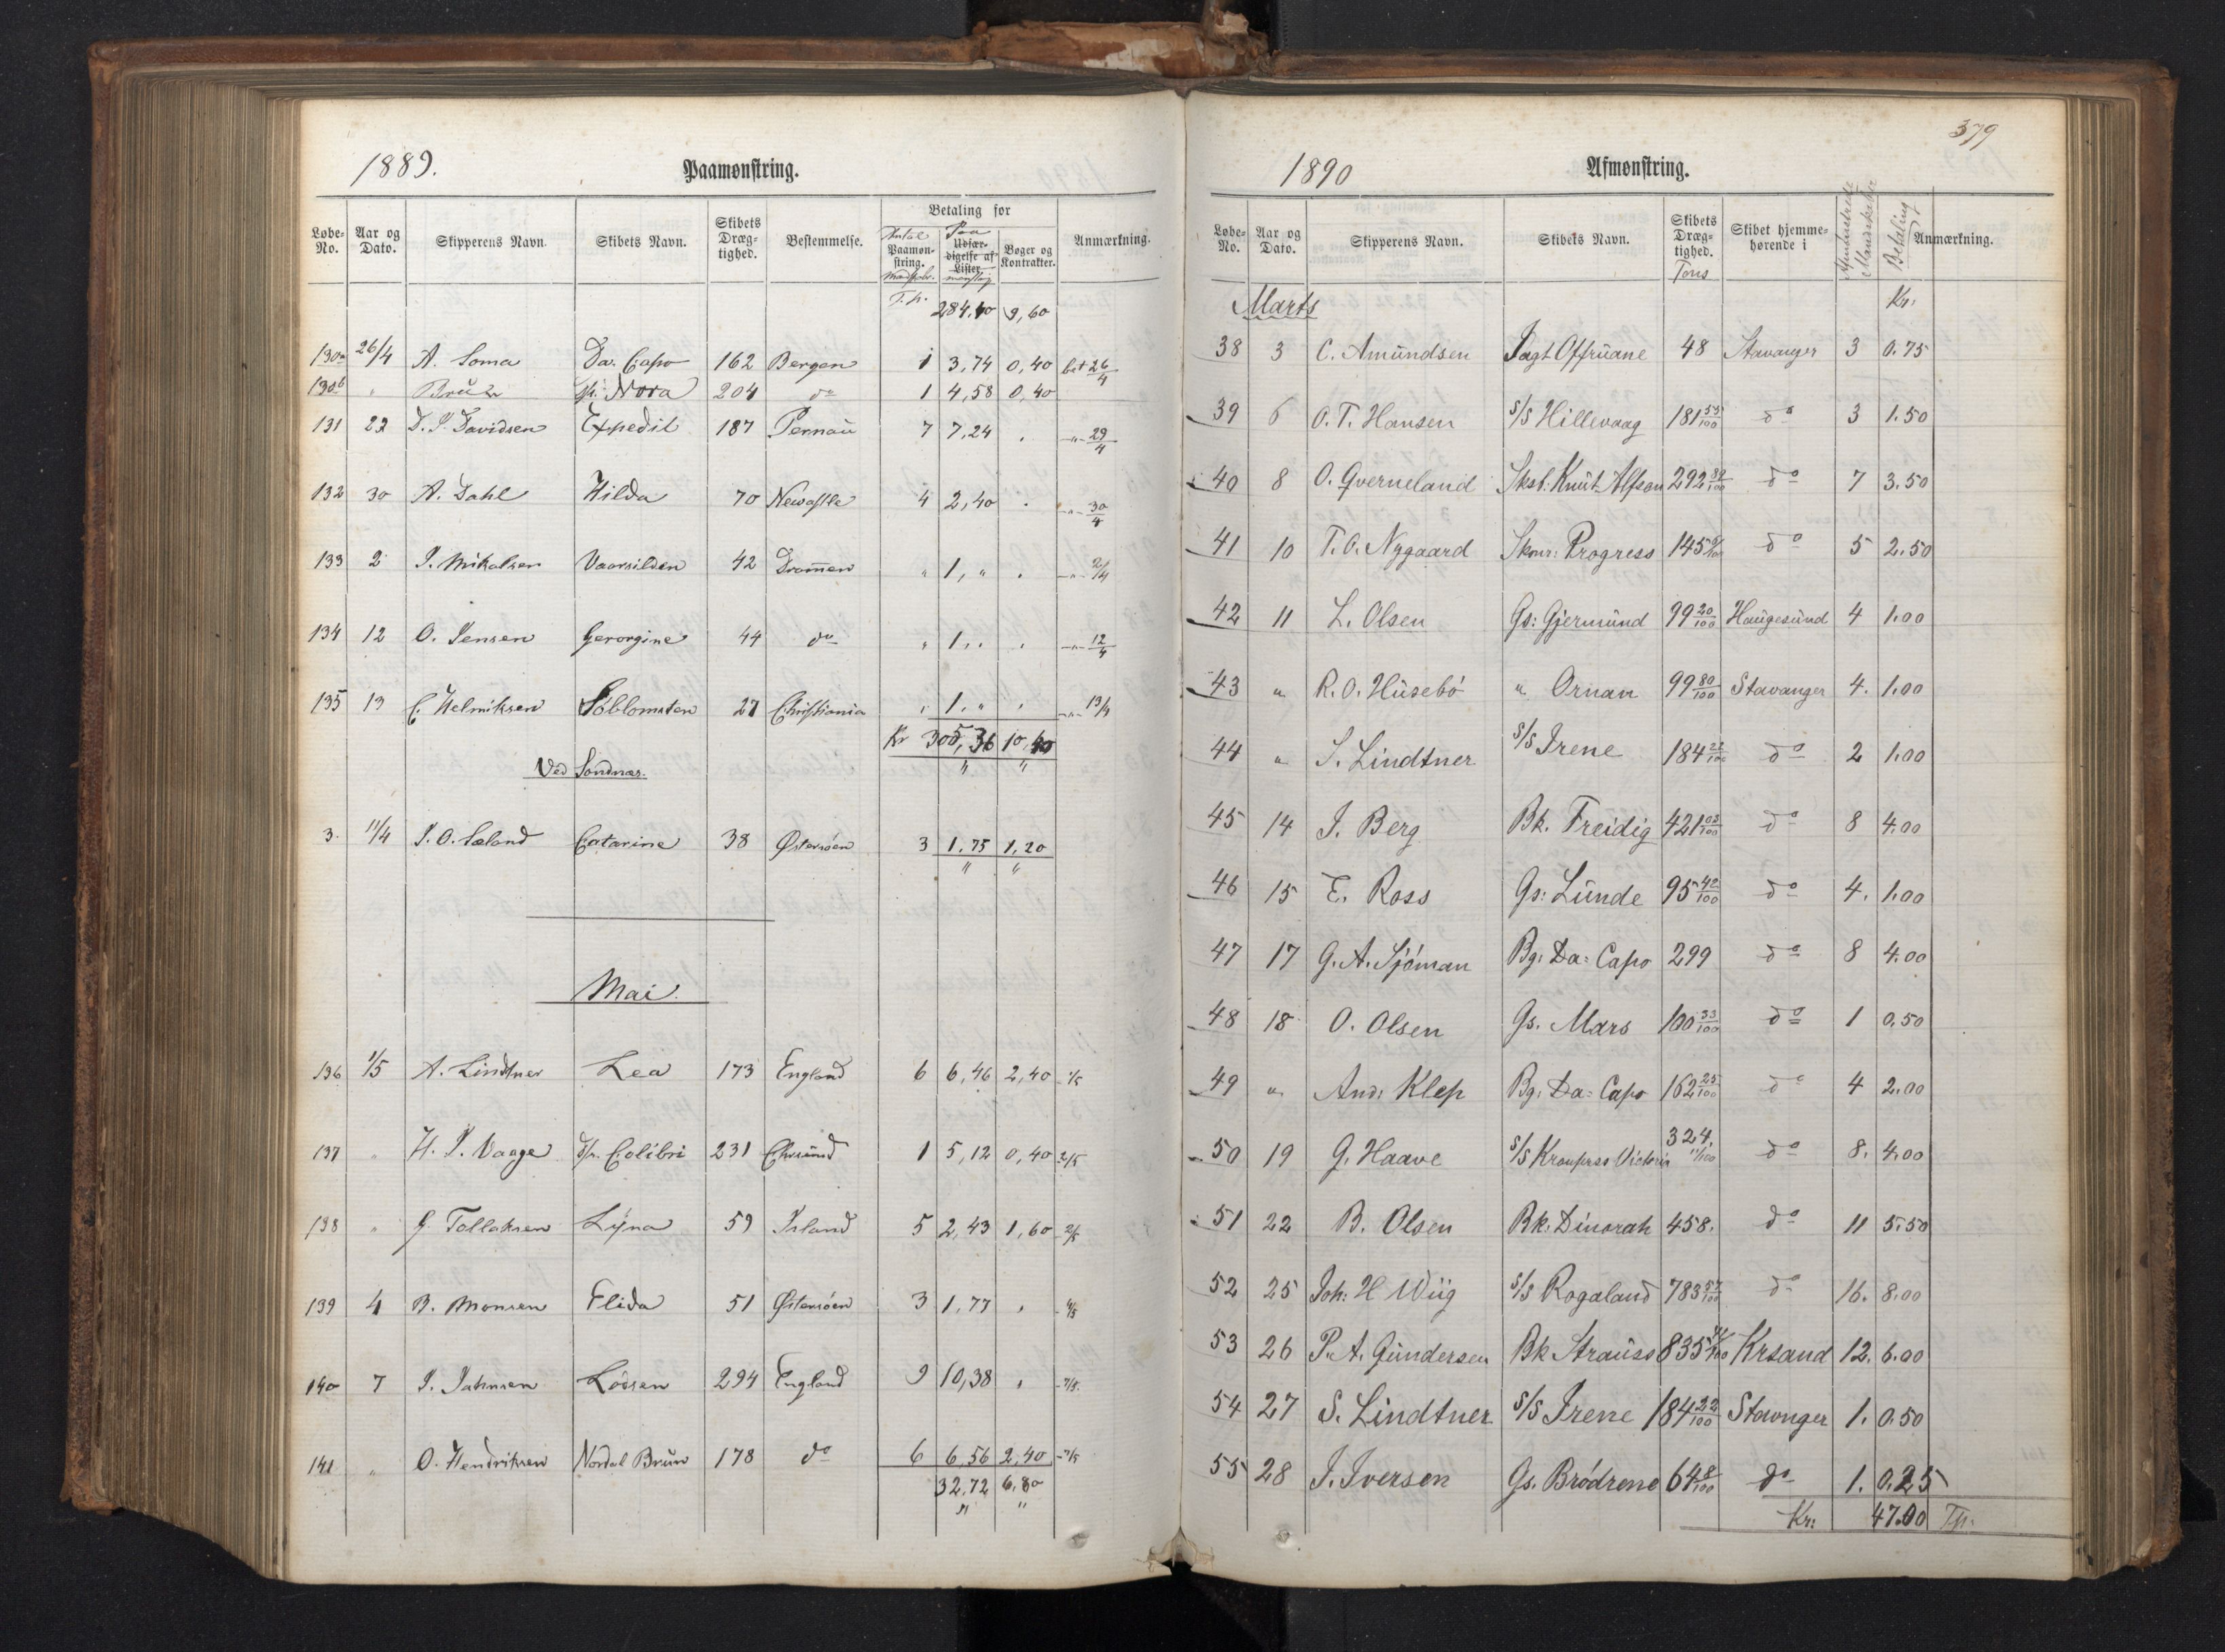 1889.
Paamønstring.
Løbe-No.
Aar og Dato.
Skipperens Navn.
Skibets Navn.
Skibets Dræg-tighed.
Bestemmelse.
Betaling for
Antal
Paamøn-string.
Mandskab.
Paa
Udfær-digelse af Lister
mønstring
Bøger og Kontrakter.
Anmærkning.
T. p. 284,40 9,60
130a 26/4 A. Soma Da Capo 162 Bergen 1 3,74 0,40 bet 26/4
130b " Bruun Sp. Nora 204 do 1 4,58 0,40
131 22 D. P. Davidsen Expedit 187 Pernau 7 7,24 " -"- 29/4
132 30 A. Dahl Hilda 70 Newcastle 4 2,40 " -"- 30/4
133 2 J. Mikalsen Vaarsilden 42 Drammen " 1, " " -"- 2/4
134 12 O. Jensen Gerorgine 44 do " 1 " " -"- 12/4
135 13 C. Helmiksen Söblomsten 27 Christiania " 1, " " -"- 13/4
Kr 305,36 10,40
" "
Ved Sondnær.
3. 11/4 J. O. Sæland Catarine 38 Østersøen 3 1,75 1,20
" "
Mai.
136 1/5 A. Lindtner Lea 173 England 6 6,46 2,40 - 1/5
137 " H. J. Vaage Sp. Colibri 231 Chrsund 1 5,12 0,40 2/5
138 " G Tollaksen Lyna 59 Island 5 2,43 1,60 - 2/5
139 4 B. Monsen Elida 51 Østersøen 3 1,77 " - 4/5
140 7 J. Jahnsen Lodsen 294 England 9 10,38 " - 7/5.
141 " O. Hendriksen Nordal Brun 178 do 6 6,56 2,40 - 7/5
32,72 6,80
" "
379
1890
Afmønstring.
Løbe-No.
Aar og Dato.
Skipperens Navn.
Skibets Navn.
Skibets Dræg-tighed.
Tons
Skibet hjemme-hørende i
Afmønstrede Mandskaber
Betaling
Anmærkning.
Marts
Kr.
38 3 C. Amundsen Jagt Offruane 48 Stavanger 3 0.75
39 6 O. T. Hansen S/S Hillevaag 181 55/100 do 3 1.50
40 8 O. Qverneland Sksk. Knut Alfson 292 89/100 do 7 3.50
41 10 T. O. Nygaard Skonr: Progress 145 do 5 2.50
42 11 L. Olsen Gs: Gjermund 99 20/100 Haugesund 4 1.00
43 " R. O. Husebö " Ornan 99 80/100 Stavanger 4. 1.00
44 " S. Lindtner S/S Irene 184 22/100 do 2 1.00
45 14 J. Berg Bk. Freidig 421 03/100 do 8 4.00
46 15 E. Ross Gs: Lunde 95 42/100 do 4. 1.00
47 17 G. A. Sjöman Bg: Da: Capo 299 do 8 4.00
48 18 O. Olsen Gs. Mars 100 33/100 do 1 0.50
49 " And: Klep Bg: Da: Capo 162 25/100 do 4 2.00
50 19 G. Haave S/S Kronprss Victoria 324. 11/100 do 8. 4.00
51 22 B. Olsen Bk. Dinorah 458. do 11 5.50
52 25 Joh: H Wiig S/S Rogaland 783 57/100 do 16. 8.00
53 26 P. A. Gundersen Bk Strauss 835 Krsand 12. 6.00
54 27 S. Lindtner S/S Irene 184 22/100 Stavnger 1. 0.50
55 28 J. Iversen Gs. Brödrene 64 8/100 do 1. 0.25
Kr: 47.00 T.p.